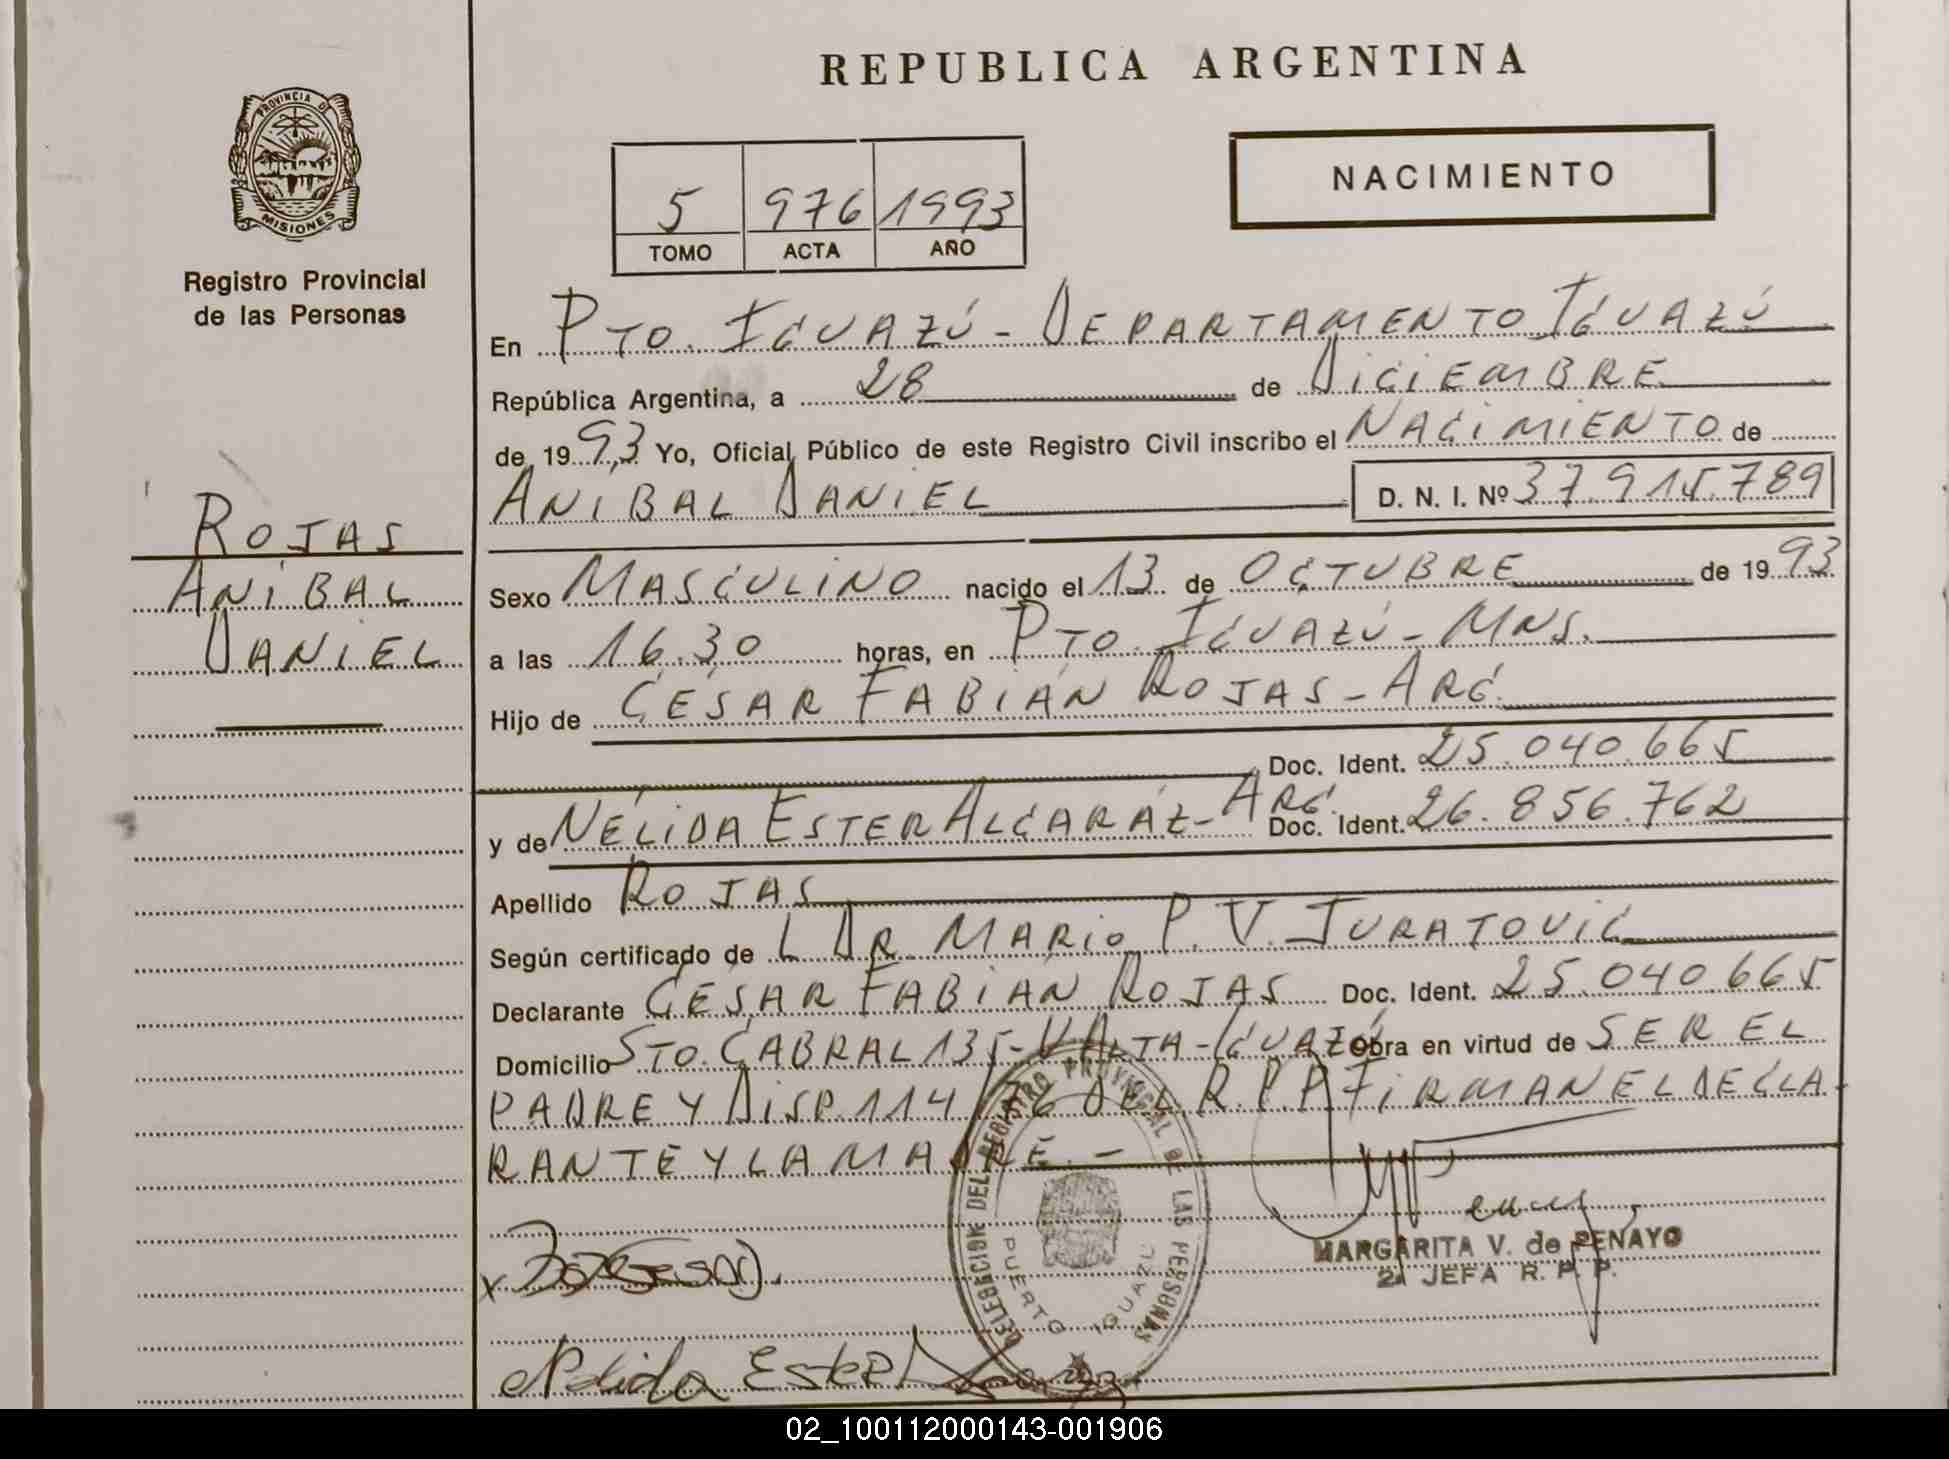 REPUBLICA ARGENTINA
PROVINCIA DE
MISIONES
Registro Provincial
de las Personas
NACIMIENTO
5 976 1993
TOMO ACTA AÑO
En PTO. IGUAZÚ - DEPARTAMENTO IGUAZÚ
República Argentina, a 28 de DICIEMBRE
de 1993 Yo, Oficial Público de este Registro Civil inscribo el NACIMIENTO de
ANIBAL DANIEL D. N. I. Nº 37.915.789
ROJAS
ANIBAL
DANIEL
Sexo MASCULINO nacido el 13 de OCTUBRE de 1993
a las 16.30 horas, en PTO. IGUAZÚ - MNS.
Hijo de CESAR FABIÁN ROJAS - ARG.
Doc. Ident. 25.040.665
y de NÉLIDA ESTER ALCARÁZ - ARG. Doc. Ident. 26.856.762
Apellido ROJAS
Según certificado de L DR MARIO P. V. JURATOVIC
Declarante CESAR FABIÁN ROJAS Doc. Ident. 25.040.665
Domicilio STO. CABRAL 135 - V. ALTA - IGUAZÚ obra en virtud de SER EL
PADRE Y DISP. 114/76 DEL R.P.P. FIRMAN EL DECLA-
RANTE Y LA MADRE. -
DELEGACION DEL REGISTRO PROVINCIAL DE LAS PERSONAS
PUERTO IGUAZU
MARGARITA V. de PENAYO
2ª JEFA R. P. P.
Nelida Ester
02_100112000143-001906